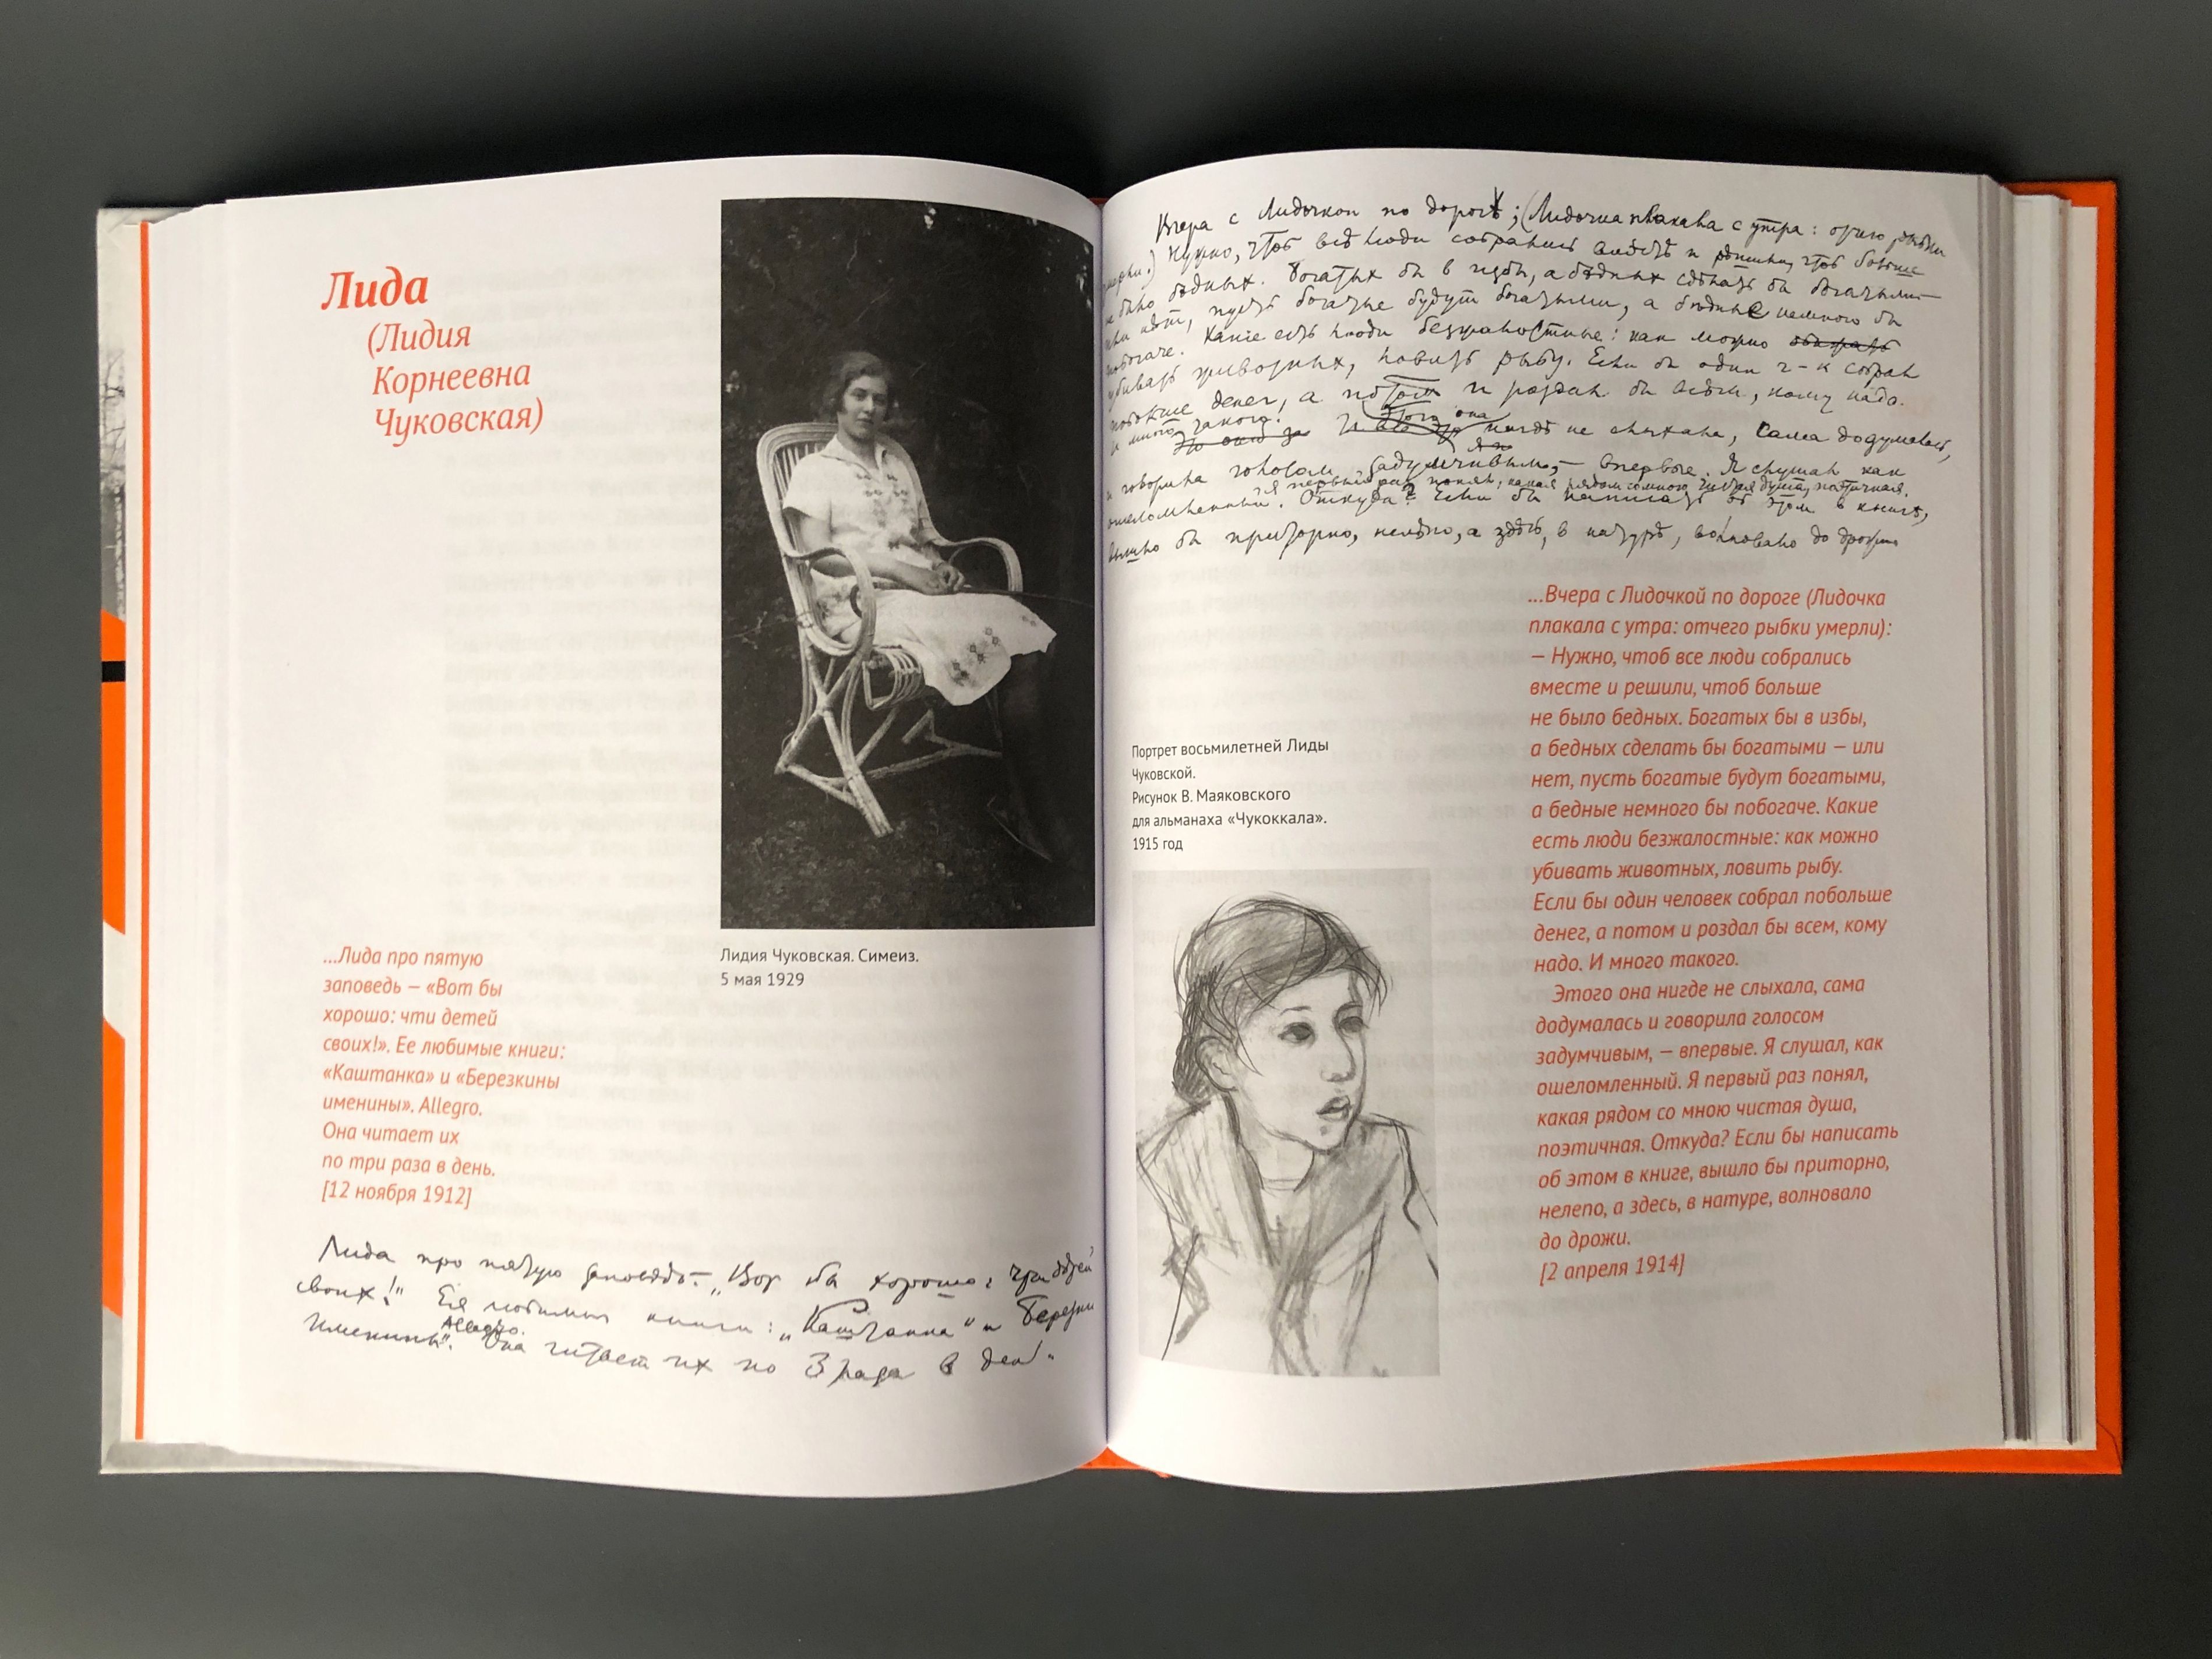 Лида
(Лидия
Корнеевна
Чуковская)
Лидия Чуковская. Симеиз.
5 мая 1929
...Лида про пятую
заповедь — «Вот бы
хорошо: чти детей
своих!». Ее любимые книги:
«Каштанка» и «Березкины
именины». Allegro.
Она читает их
по три раза в день.
[12 ноября 1912]
Лида про пятую заповѣдь — „Вот бы хорошо: чти дѣтей
своих!" Ея любимыя книги: „Каштанка" и Березки
Именины". Allegro. Она читает их по 3 раза в день.
Вчера с Лидочкой по дорогѣ; (Лидочка плакала с утра: отчего рыбки
умерли.) Нужно, чтоб всѣ люди собрались вмѣстѣ и рѣшили, чтоб больше
не было бѣдных. Богатых бы в избы, а бѣдных сдѣлать бы богатыми —
или нѣт, пусть богатые будут богатыми, а бѣдные немного бы
побогаче. Какіе есть люди безжалостные: как можно
убивать животных, ловить рыбу. Если бы один ч-к собрал
побольше денег, а потом и роздал бы всѣм, кому надо.
И много такого. Этого она нигдѣ не слыхала, сама додумалась,
и говорила голосом задумчивым, — впервые. Я слушал как
ошеломленный. Я первый раз понял, какая рядом со мною чистая душа, поэтичная.
Откуда? Если бы написать об этом в книгѣ,
вышло бы приторно, нелѣпо, а здѣсь, в натурѣ, волновало до дрожи
Портрет восьмилетней Лиды
Чуковской.
Рисунок В. Маяковского
для альманаха «Чукоккала».
1915 год
...Вчера с Лидочкой по дороге (Лидочка
плакала с утра: отчего рыбки умерли):
— Нужно, чтоб все люди собрались
вместе и решили, чтоб больше
не было бедных. Богатых бы в избы,
а бедных сделать бы богатыми — или
нет, пусть богатые будут богатыми,
а бедные немного бы побогаче. Какие
есть люди безжалостные: как можно
убивать животных, ловить рыбу.
Если бы один человек собрал побольше
денег, а потом и роздал бы всем, кому
надо. И много такого.
Этого она нигде не слыхала, сама
додумалась и говорила голосом
задумчивым, — впервые. Я слушал, как
ошеломленный. Я первый раз понял,
какая рядом со мною чистая душа,
поэтичная. Откуда? Если бы написать
об этом в книге, вышло бы приторно,
нелепо, а здесь, в натуре, волновало
до дрожи.
[2 апреля 1914]